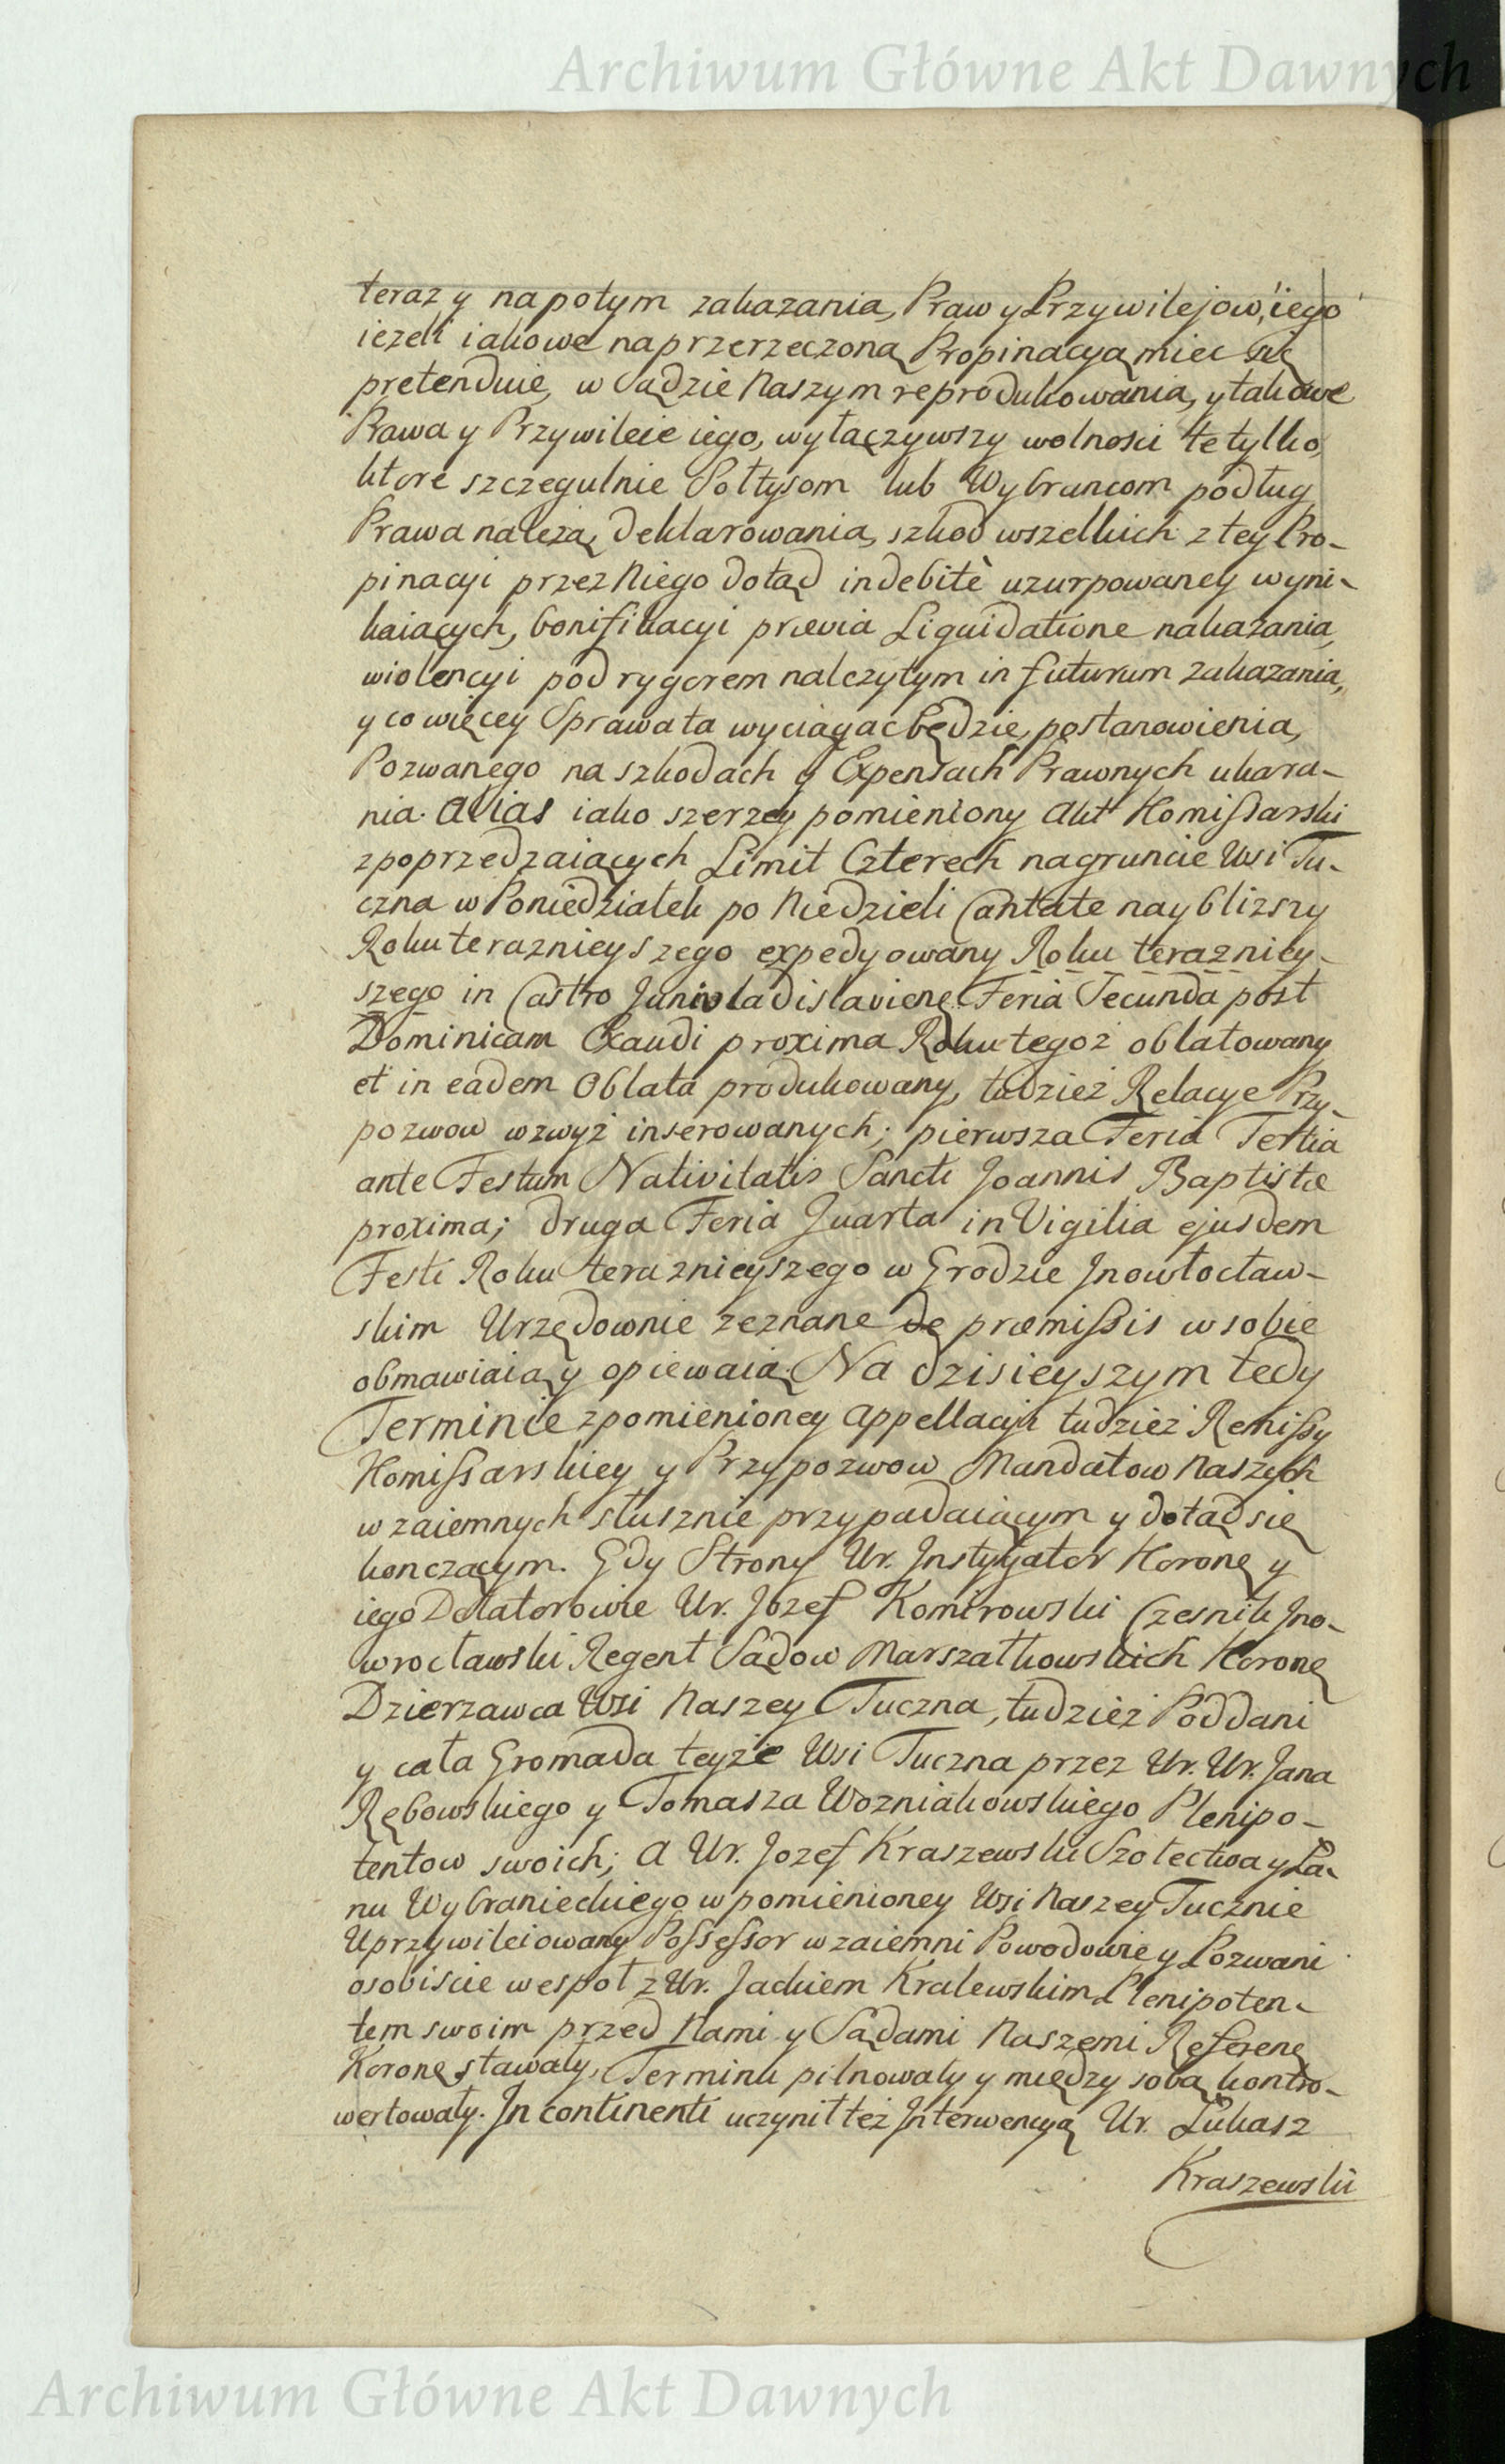 Archiwum Główne Akt Dawnych
teraz y napotym zakazania, Praw y Przywilejow, iego
iezeli iakowe na przerzeczoną Propinacyą miec się
pretenduie, w Sądzie Naszym reprodukowania, y takowe
Prawa y Przywileie iego, wyłączywszy wolnosci te tylko,
ktore szczegulnie Sołtysom lub Wybrancom podług
Prawa należą, deklarowania, szkod wszelkich z tey Pro-
pinacyi przez Niego dotąd indebitè uzurpowaney wyni-
kaiących, bonifikacyi prævia Liquidatione nakazania,
wiolencyi pod rygorem nalezytym in futurum zakazania,
y co więcey Sprawa ta wyciągac będzie, postanowienia,
Pozwanego na szkodach y Expensach Prawnych ukara-
nia. Alias iako szerzey pomieniony Akt Komissarski
z poprzedzaiących Limit Czterech na gruncie Wsi Tu-
czna w Poniedziałek po Niedzieli Cantate nayblizszy
Roku terazniejszego expedyowany Roku terazniey-
szego in Castro Juniwladislaviene. Feria Secunda post
Dominicam Exaudi proxima Roku tegoż oblatowany
et in eadem Oblata produkowany, tudzież Relacye Przy-
pozwow wzwyż inserowanych; pierwsza Feria Tertia
ante Festum Nativitatis Sancti Joannis Baptistæ
proxima; druga Feria Quarta in Vigilia ejusdem
Festi Roku teraznieyszego w Grodzie Jnowłocław-
skim Urzędownie zeznane de præmissis w sobie
obmawiaią y opiewaią. Na dzisieyszym tedy
Terminie z pomienioney Appellacyi tudzież Remissy
Komissarskiey y Przypozwow Mandatow Naszych
wzaiemnych słusznie przypadaiącym y dotąd się
konczącym. Gdy Strony Ur. Jnstygator Koronę y
iego Delatorowie Ur. Jozef Komirowski Czesnik Jno-
wrocławski Regent Sądow Marszałkowskich Koronę
Dzierzawca Wsi Naszey Tuczna, tudzież Poddani
y cała Gromada teyże Wsi Tuczna przez Ur. Ur. Jana
Rębowskiego y Tomasza Wozniakowskiego Plenipo-
tentow swoich; A Ur. Jozef Kraszewski Szołectwa y Ła-
nu Wybranieckiego w pomienioney Wsi Naszey Tucznie
Uprzywileiowany Possessor wzaiemni Powodowie y Pozwani
osobiscie wespoł z Ur. Jackiem Kralewskim Plenipoten-
tem swoim przed Nami y Sądami Naszemi Referenę
Koronę stawały, Terminu pilnowały y między sobą kontro-
wertowały. Jn continenti uczynił też Jnterwencyą Ur. Łukasz
Kraszewski
Archiwum Główne Akt Dawnych